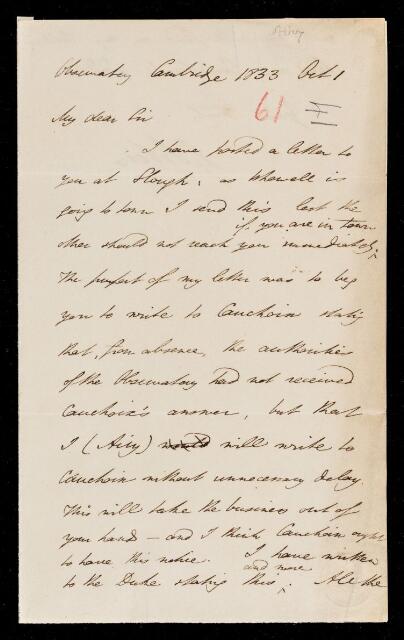 Airy
Observatory Cambridge 1833 Oct 1
61
My dear Sir
I have posted a letter to
you at Slough, as Whewell is
going to town I send this lest the
if you are in town
other should not reach you immediately.
The purport of my letter was to beg
you to write to Cauchoix stating
that, from absence, the authorities
of the Observatory had not received
Cauchoix's answer, but that
I (Airy) would will write to
Cauchoix without unnecessary delay.
This will take the business out of
your hands — and I think Cauchoix ought
to have this notice. I have written
and more
to the Duke stating this. All the